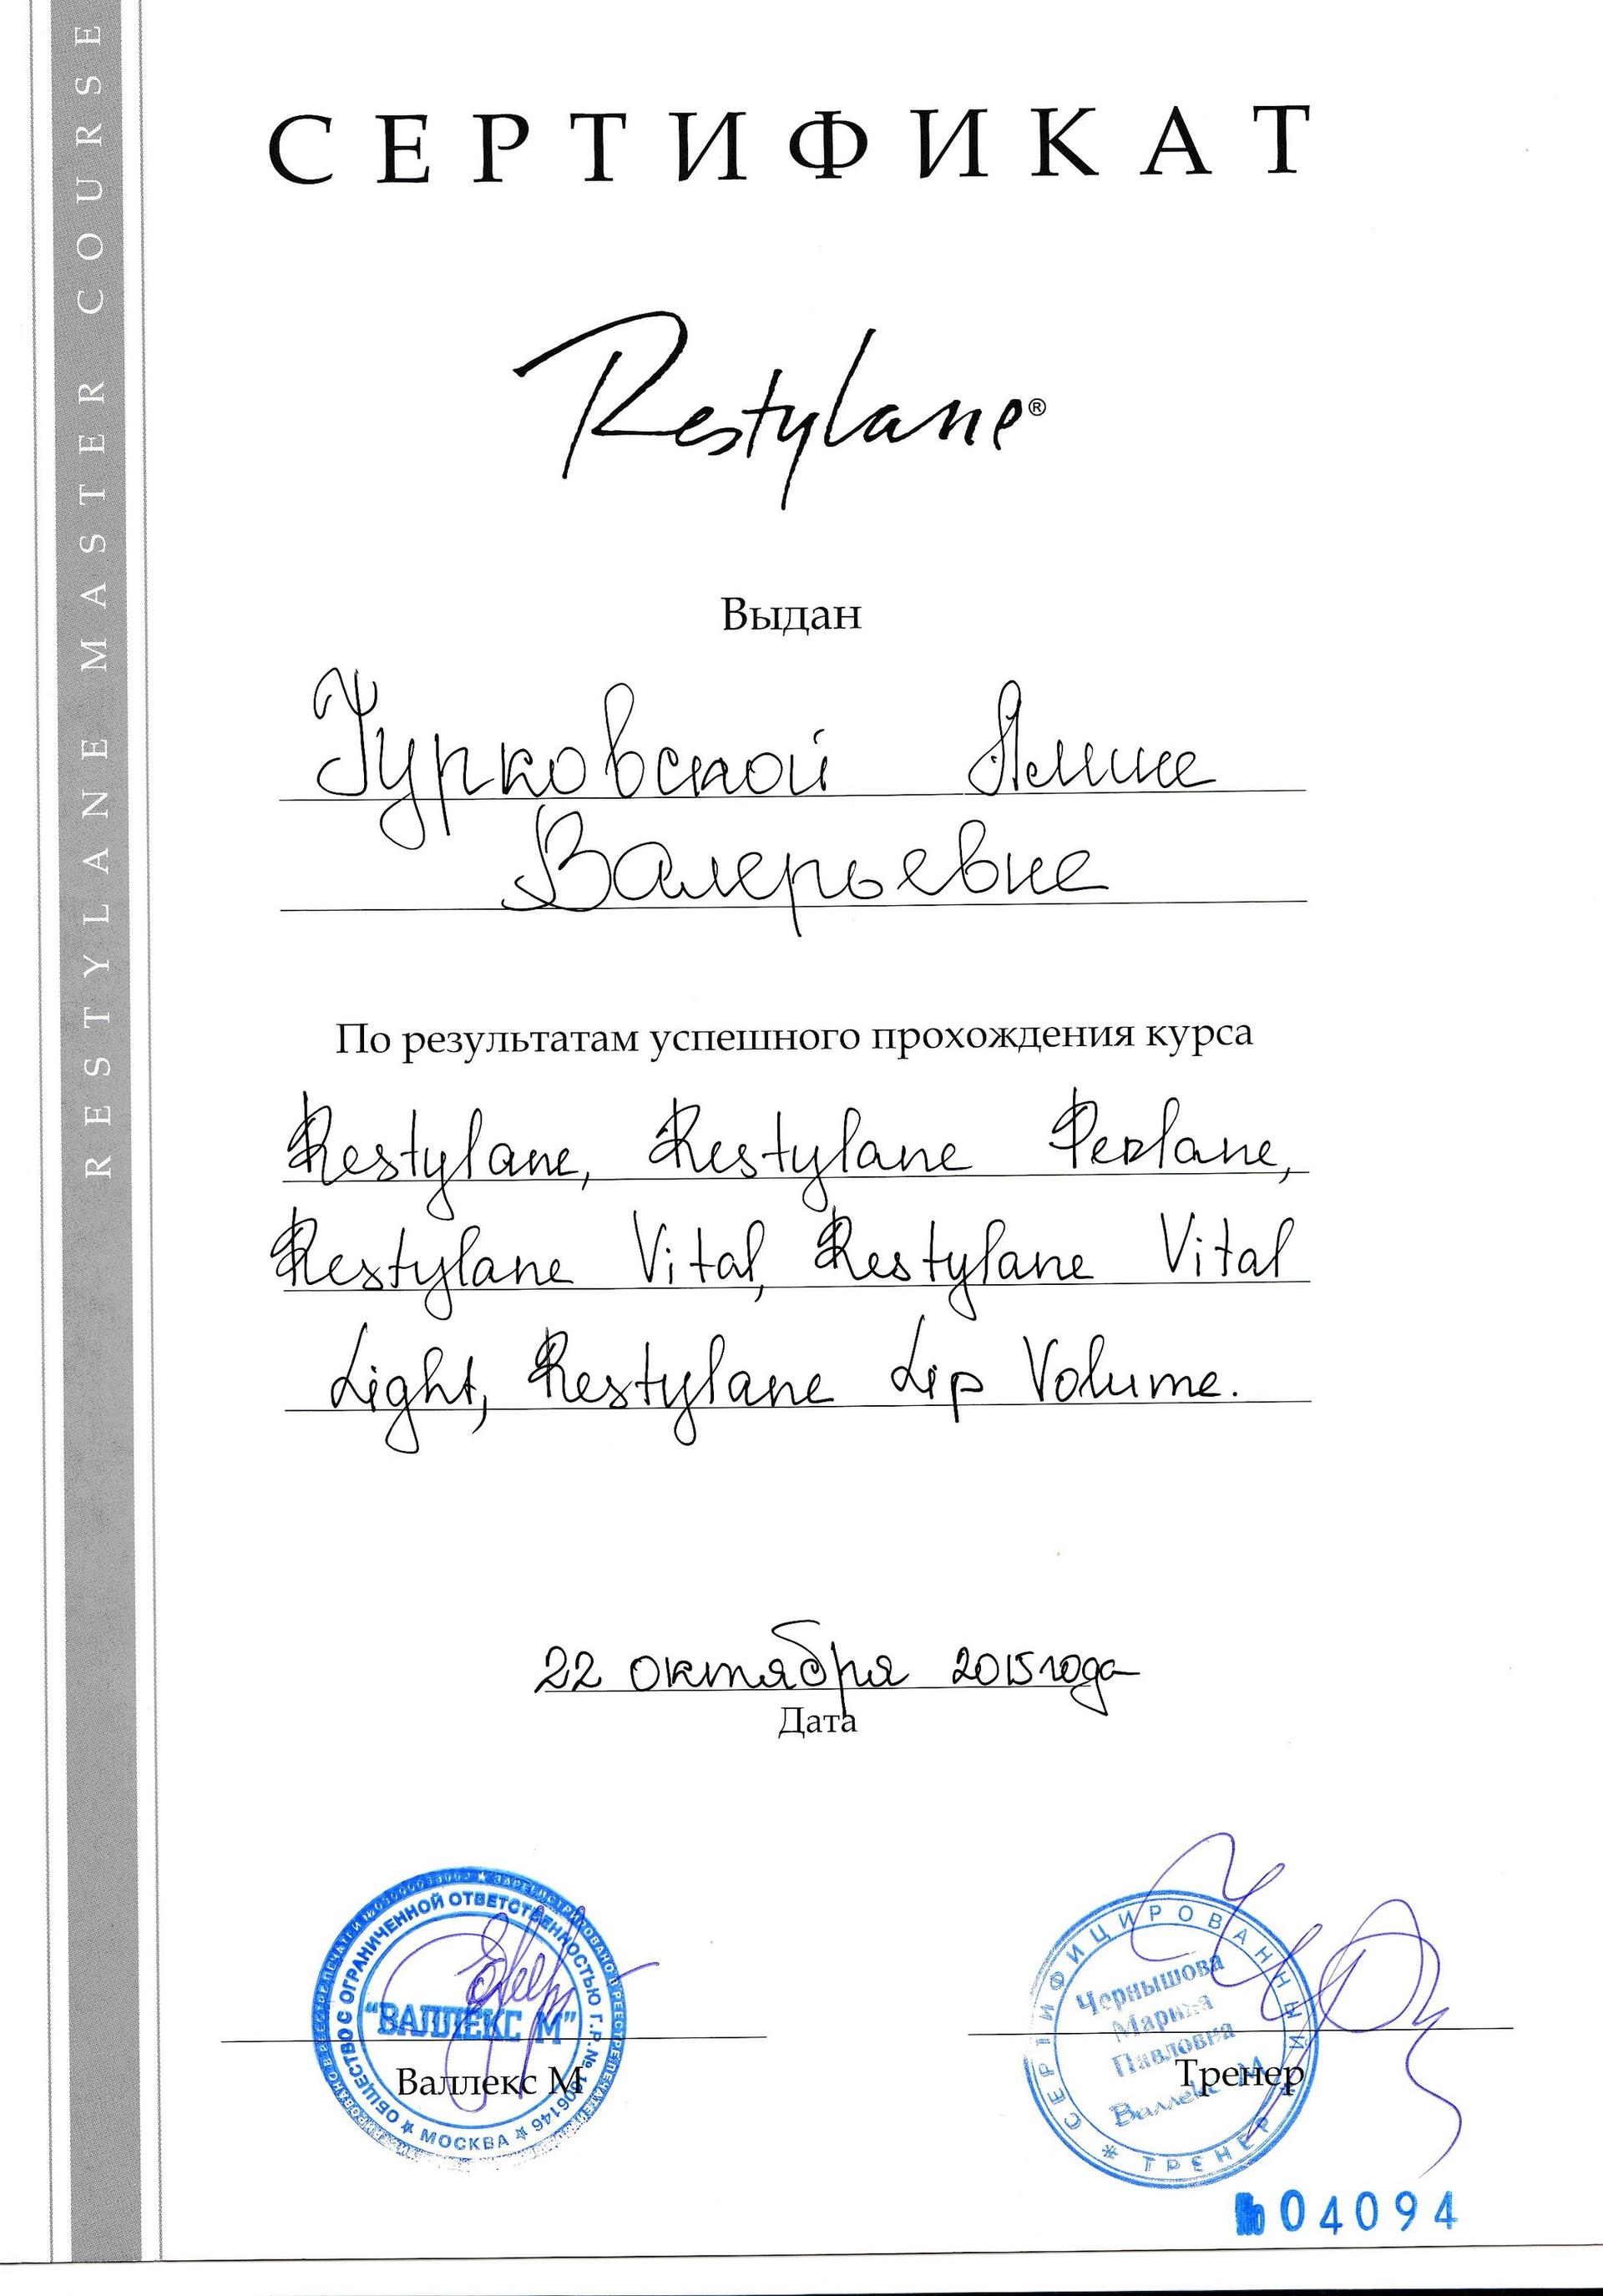 RESTYLANE MASTER COURSE
СЕРТИФИКАТ
Restylane®
Выдан
Турковской Алине
Валерьевне
По результатам успешного прохождения курса
Restylane, Restylane Perlane,
Restylane Vital, Restylane Vital
Light, Restylane Lip Volume.
22 октября 2015 года
Дата
ОБЩЕСТВО С ОГРАНИЧЕННОЙ ОТВЕТСТВЕННОСТЬЮ Г.Р. № 1606146
"ВАЛЛЕКС М"
МОСКВА
Валлекс М
СЕРТИФИЦИРОВАННЫЙ
Чернышова
Марина
Павловна
Валлекс М
Тренер
ТРЕНЕР
№04094